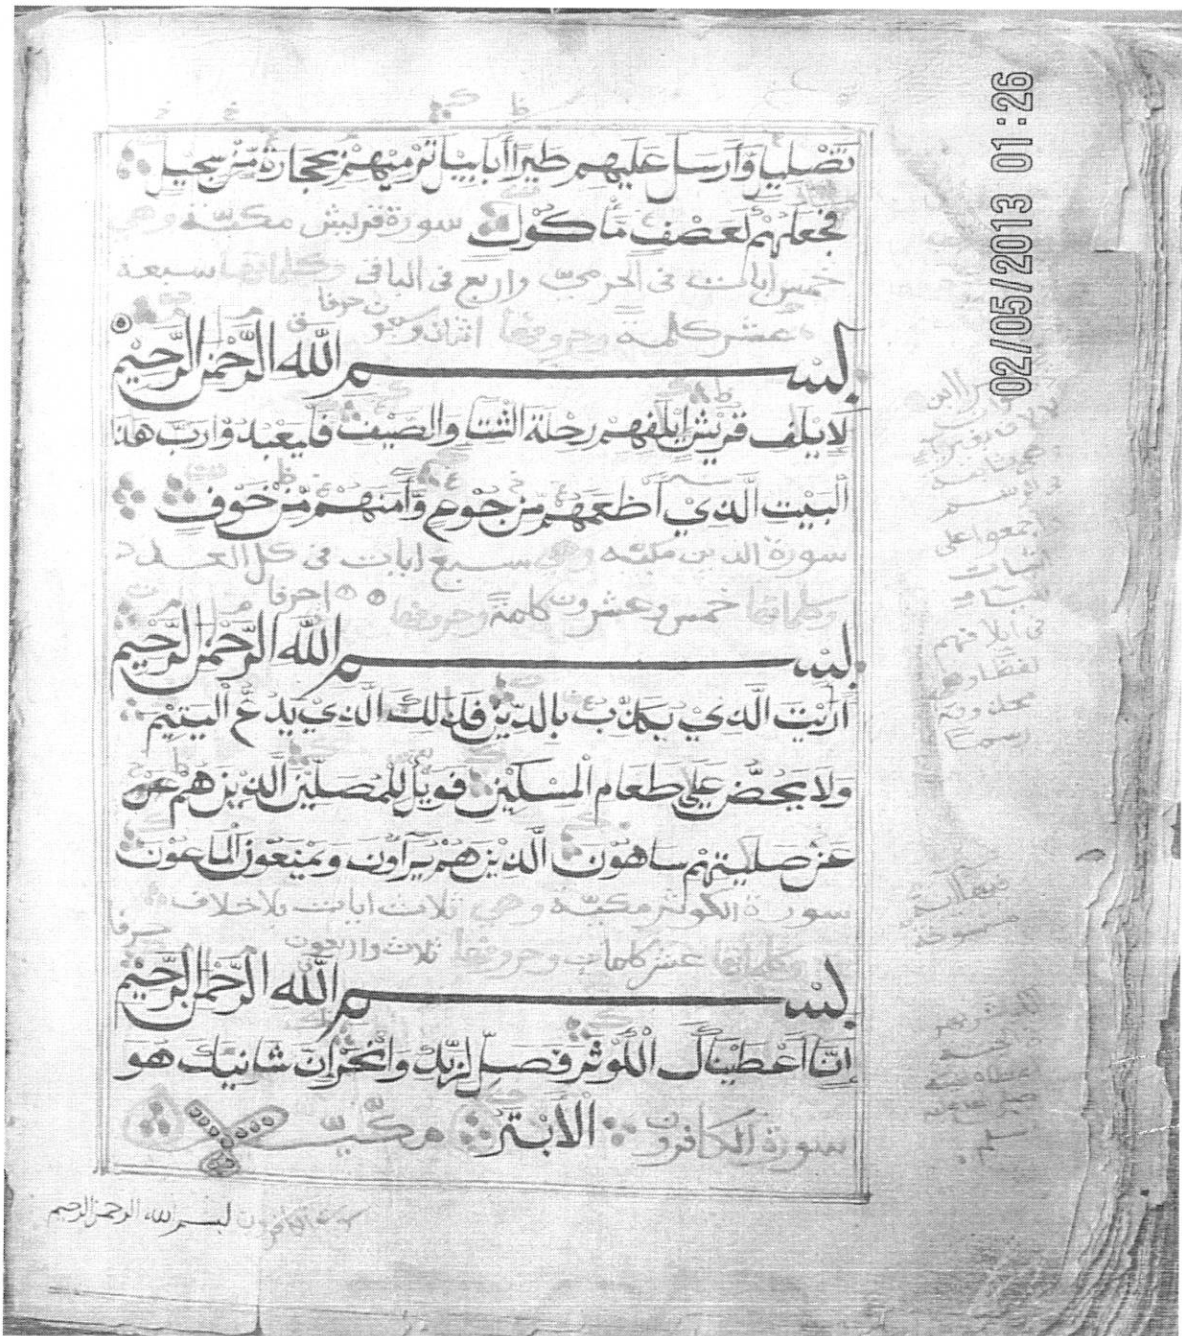 تَضْلِيلٍ وَّأَرْسَلَ عَلَيْهِمْ طَيْرًا أَبَابِيلَ تَرْمِيْهِمْ بِحِجَارَةٍ مِّنْ سِجِّيلٍ
فَجَعَلَهُمْ كَعَصْفٍ مَّأْكُوْلٍ سورة قريش مكيّة وهي
خمس ايات في الحرمي واربع في الباقي وكلماتها سبعة
عشر كلمة وحروفها اثنان وسبعون حرفا
بِسْمِ اللَّهِ الرَّحْمٰنِ الرَّحِيْمِ
لِايلٰفِ قُرَيْشٍ اٖلٰفِهِمْ رِحْلَةَ الشِّتَا وَالصَّيْفِ فَلْيَعْبُدُوْا رَبَّ هٰذَا
الْبَيْتِ الَّذِيْ أَطْعَمَهُمْ مِّنْ جُوْعٍ وَّآمَنَهُمْ مِّنْ خَوْفٍ
سورة الدين مكيّة وهي سبع ايات في كل العدد
وكلماتها خمس وعشرون كلمة وحروفها ١٥٥ حرفا
بِسْمِ اللَّهِ الرَّحْمٰنِ الرَّحِيْمِ
اَرَيْتَ الَّذِيْ يُكَذِّبُ بِالدِّيْنِ فَذٰلِكَ الَّذِيْ يَدُعُّ الْيَتِيْمَ
وَلَا يَحُضُّ عَلٰى طَعَامِ الْمِسْكِيْنِ فَوَيْلٌ لِّلْمُصَلِّيْنَ الَّذِيْنَ هُمْ عَنْ
عَنْ صَلٰيتِهِمْ سَاهُوْنَ الَّذِيْنَ هُمْ يُرَآوُنَ وَيَمْنَعُوْنَ الْمَاعُوْنَ
سورة الكوثر مكيّة وهي ثلاث ايات بلا خلاف
وكلماتها عشر كلمات وحروفها ثلاث واربعون حرفا
بِسْمِ اللَّهِ الرَّحْمٰنِ الرَّحِيْمِ
اِنَّا اَعْطَيْنٰكَ الْكَوْثَرَ فَصَلِّ لِرَبِّكَ وَانْحَرْ اِنَّ شَانِيَكَ هُوَ
الْاَبْتَرُ سورة الكافرون مكيّة
الكافرون بسم الله الرحمن الرحيم
اجمعوا على
في ايلافهم
رسما
02/05/2013 01:26